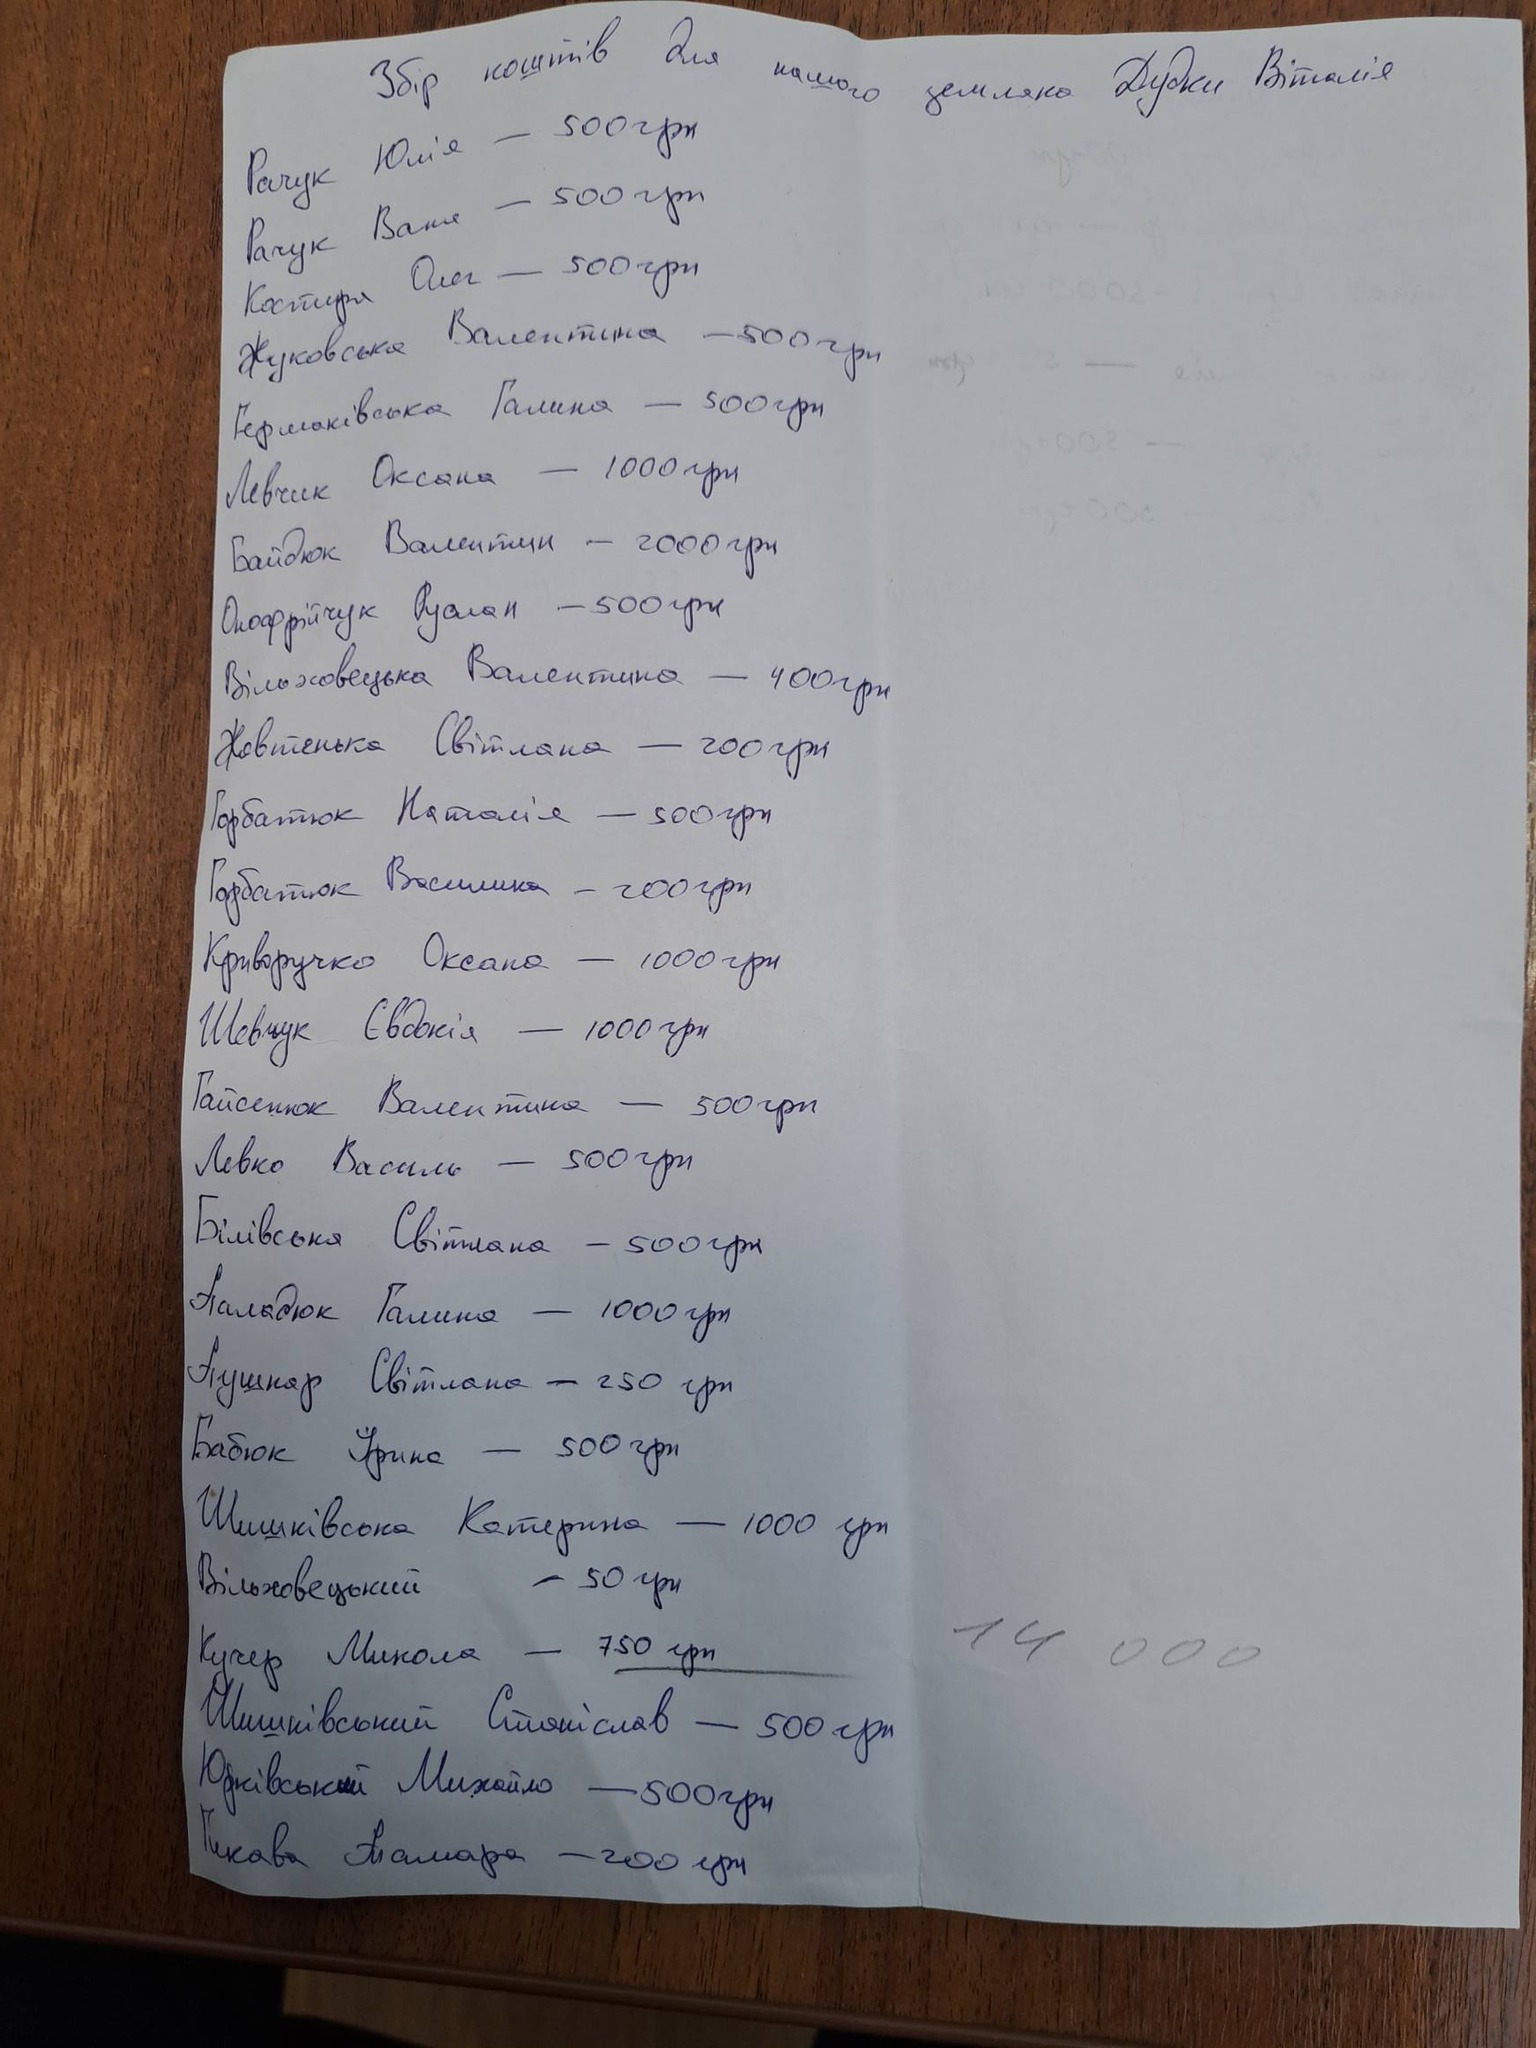 Збір коштів для нашого земляка Дудки Віталія
Рачук Юлія — 500 грн
Рачук Ваня — 500 грн
Костиря Олег — 500 грн
Жуковська Валентина — 500 грн
Гермаківська Галина — 500 грн
Левчик Оксана — 1000 грн
Байдюк Валентин — 2000 грн
Онофрійчук Руслан — 500 грн
Вільховецька Валентина — 400 грн
Жовтенька Світлана — 200 грн
Горбатюк Наталія — 500 грн
Горбатюк Василина — 200 грн
Криворучко Оксана — 1000 грн
Шевчук Євдокія — 1000 грн
Гайсенюк Валентина — 500 грн
Левко Василь — 500 грн
Білівська Світлана — 500 грн
Паладюк Галина — 1000 грн
Пушкар Світлана — 250 грн
Бабюк Ірина — 500 грн
Шишківська Катерина — 1000 грн
Вільховецький — 50 грн
Кучер Микола — 750 грн 14 000
Шишківський Станіслав — 500 грн
Юрківський Михайло — 500 грн
Гикава Тамара — 200 грн